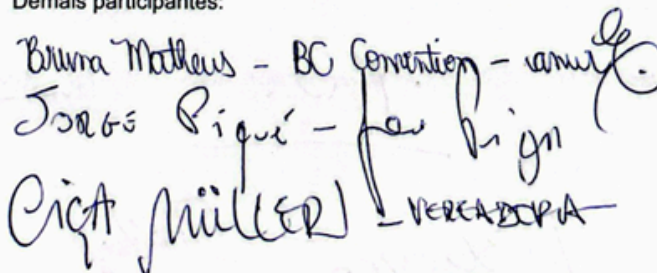 Demais participantes:
Bruna Matheus - BC Convention -
JORGE Piqué -
CIÇA MÜLLER - VEREADORA